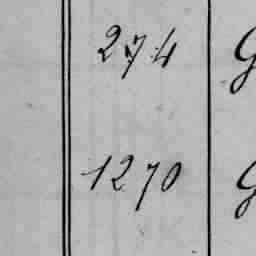 274 G
1270 G